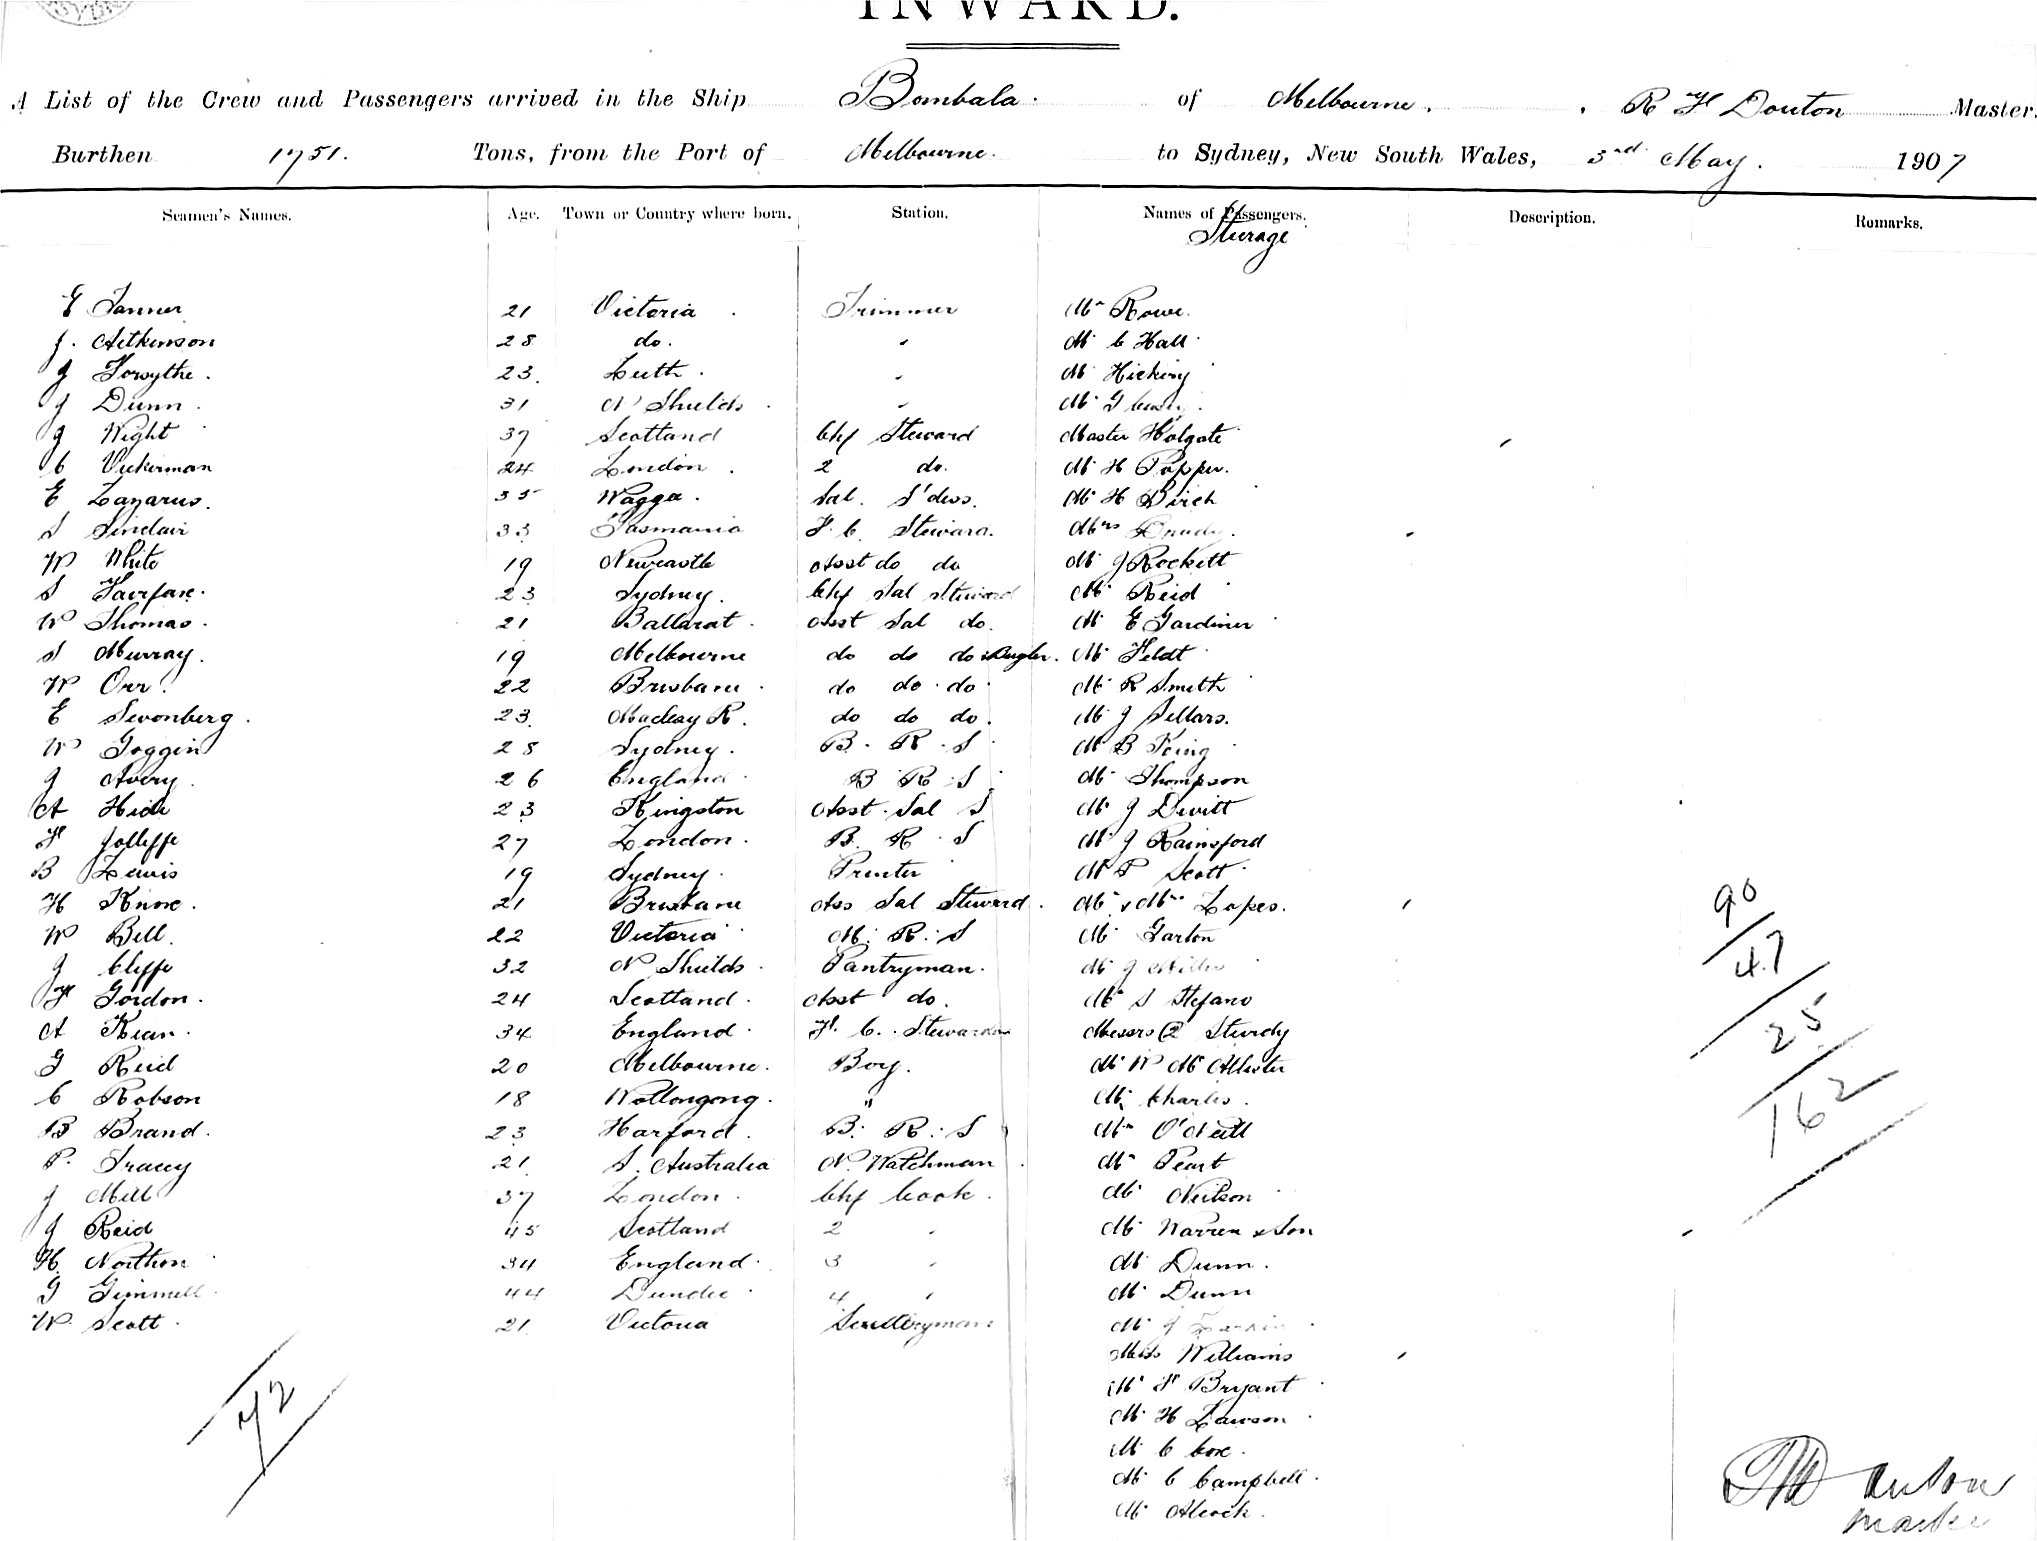 INWARD.
A List of the Crew and Passengers arrived in the Ship Bombala of Melbourne, R H Douton Master.
Burthen 1751. Tons, from the Port of Melbourne. to Sydney, New South Wales, 3rd May. 1907
Seamen's Names. Age. Town or Country where born. Station. Names of Passengers. Description. Remarks.
Sturage
E Tanner 21 Victoria Trimmer Mr Rowe.
J. Aitkinson 28 do. " Mr C Hall
J Forsythe. 23. Leith. " Mr Hickey
J Dunn. 31 N Shields. " Mr G
J Wight 37 Scotland Chf Steward Master Holgate
C Vickerman 24 London. 2 do. Mr H Popper.
E Lazarus. 35 Wagga. Sal. S'dess. Mr H Birch
S Sinclair 33 Tasmania F. C. Steward. Mrs
W White 19 Newcastle Asst do do Mr J Rockett
S Fairfax. 23 Sydney. Chf Sal Steward Mr Reid
W Thomas. 21 Ballarat. Asst Sal do. Mr E Gardiner
S Murray. 19 Melbourne do do do & Bugler. Mr Feldt
W Orr. 22 Brisbane. do do do Mr R Smith
E Swonberg. 23. Macleay R. do do do. Mr J Sellars.
W Goggin 28 Sydney. B. R. S Mr B King
J Avery. 26 England. B R S Mr Thompson
A Hide 23 Kingston Asst. Sal S Mr J Devitt
F Jolliffe 27 London. B. R. S Mr J Rainsford
B Lewis 19 Sydney. Printer Mr P Scott
H Knox. 21 Brisbane Ass Sal Steward. Mr & Mrs Lopes.
W Bell. 22 Victoria M. R. S Mr Garton
J Cliffe 32 N Shields. Pantryman. Mr J
F Gordon. 24 Scotland. Asst do. Mr S Stefano
A Kean. 34 England. F. C. Stewardess Messrs (2 Sturdy
G Reid 20 Melbourne. Boy. Mr W McAllister
C Robson 18 Wollongong. " Mr Charles.
B Brand. 23 Harford. B. R. S Mr O'Neill
P. Tracey 21 S. Australia N. Watchman Mr Peart
J Mill 37 London. Chf Cook. Mr Neilson
J Reid 45 Scotland 2 " Mr Warren & Son
H. Northon 34 England. 3 " Mr Dunn.
G Gimmell 44 Dundee. 4 " Mr Dunn
W. Scott. 21. Victoria Sculleryman Mr J
Miss Williams
Mr F Bryant
Mr H Lawson
Mr C Cox.
Mr C Campbell.
Mr Alcock.
90
47
25
162
72
Douton
Master